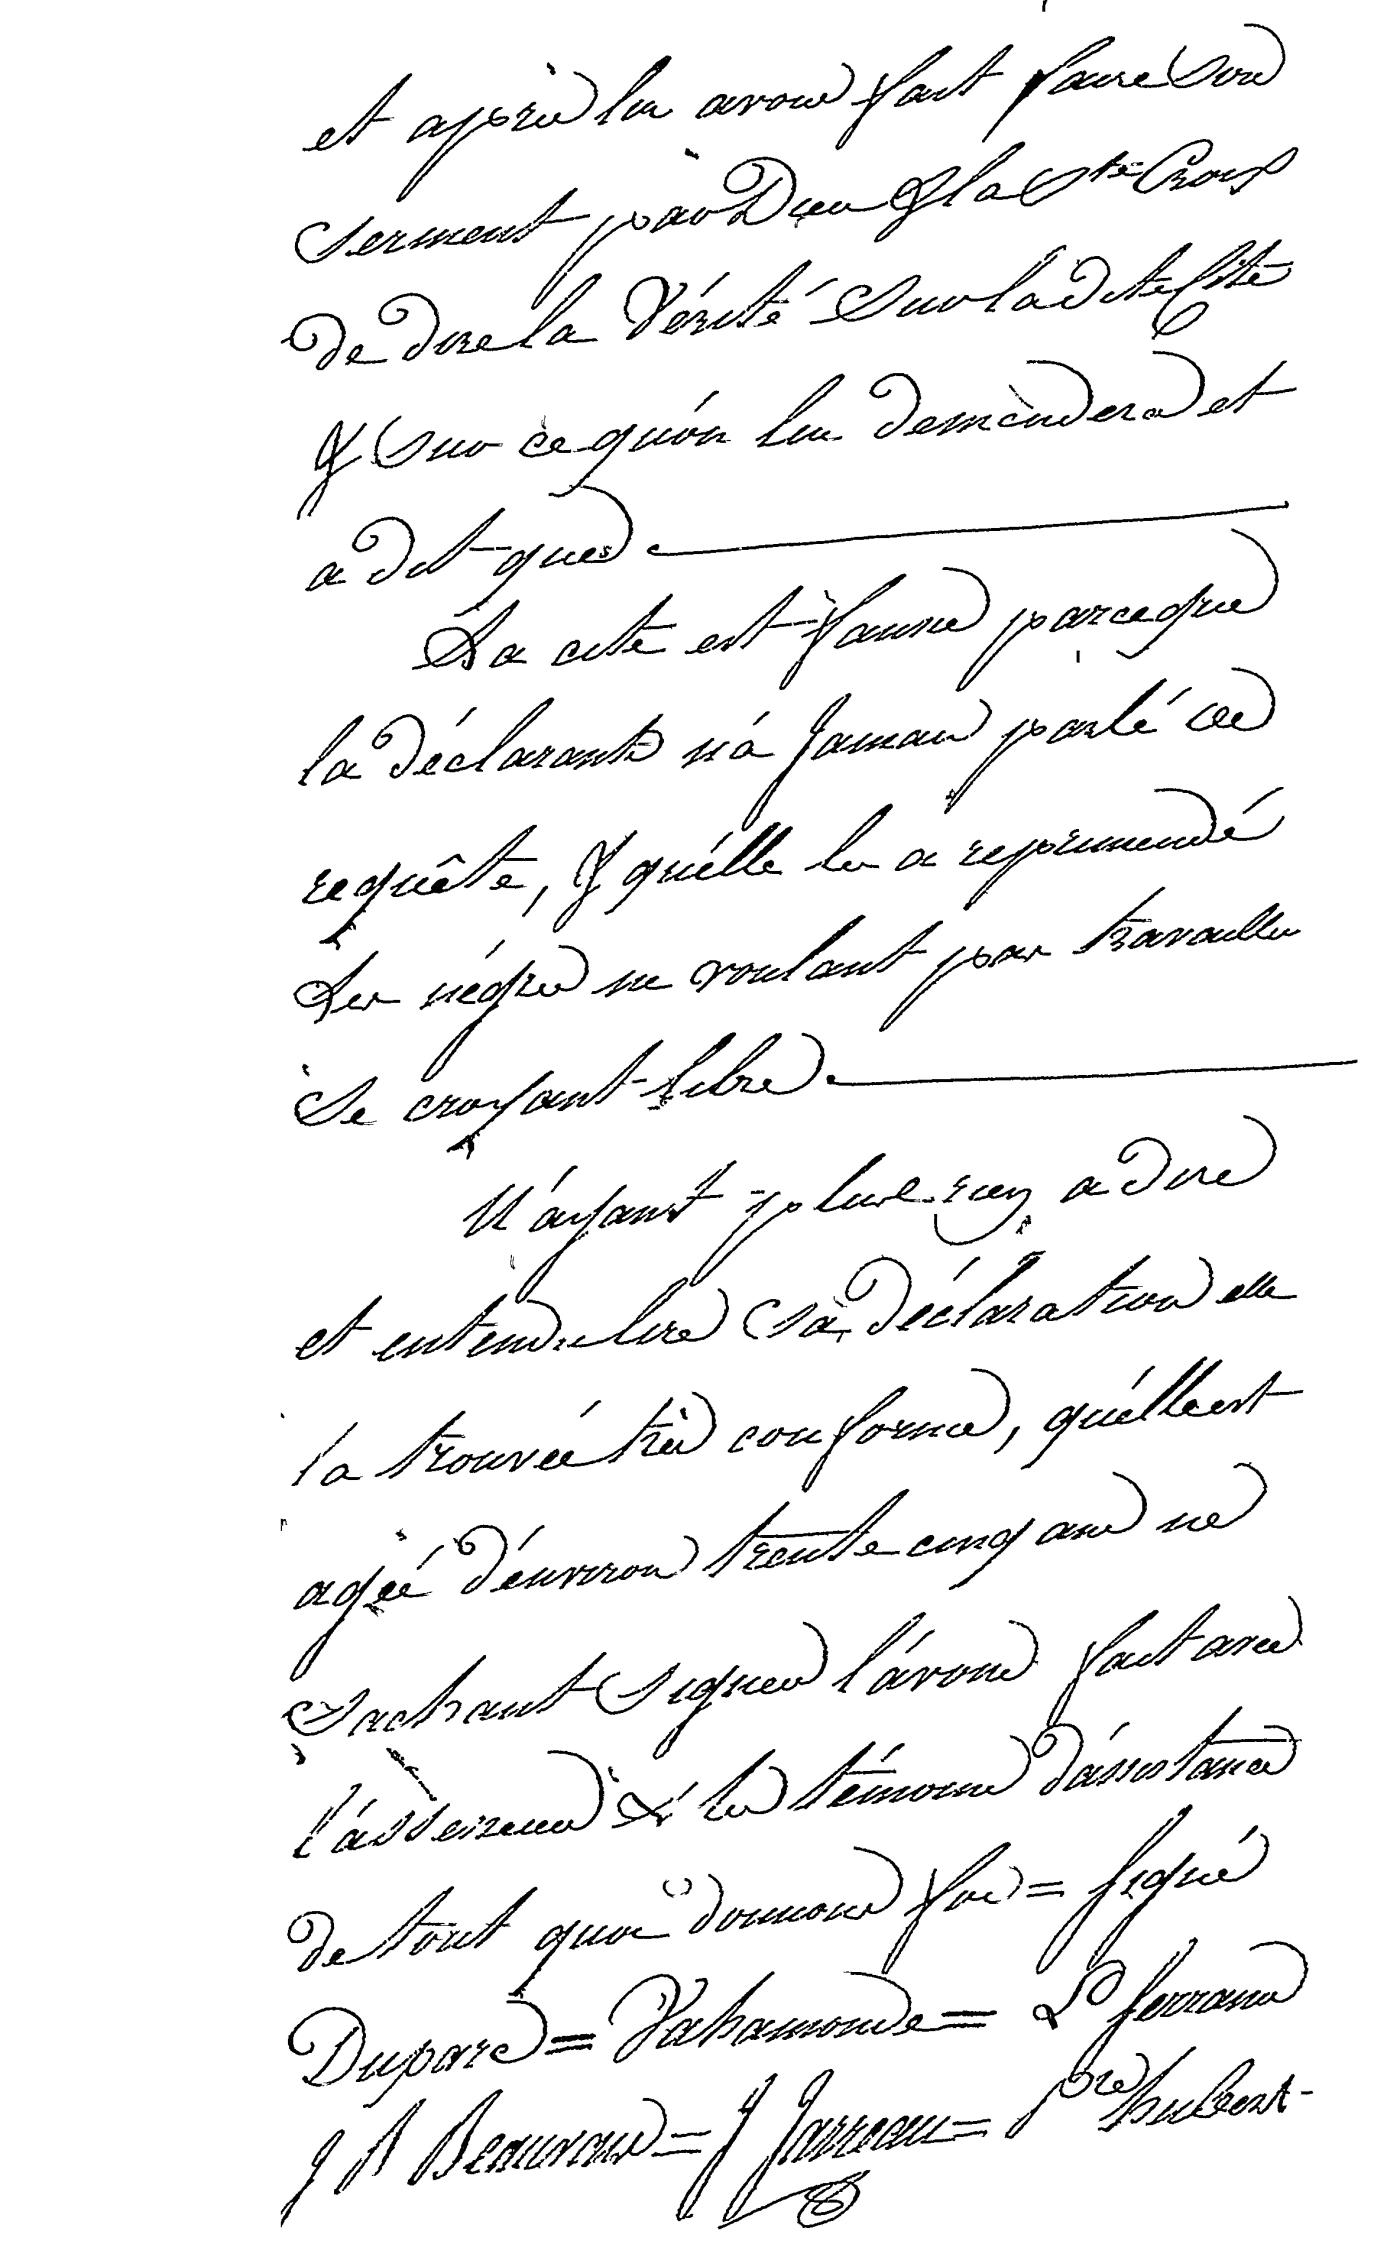 et après lui avoir fait faire son
serment par Dieu & la Ste Croix
de dire la Vérité sur la dite Cite
& sur ce qu'on lui demandera et
a dit que
La cite est fausse parceque
la déclarante n'á Jamais parlé de
requête, & qu'élle les a reprimendé
Les négres ne voulant pas travailler
se croyant libre
N'ayant plus rien a dire
et entendu lire sa déclaration elle
l'a trouvée très conforme, qu'élle est
agée d'environ trente cinq ans ne
sachant signer l'ávons fait avec
l'ássesseur & les témoins d'ássistance
de tout quoi donnons foi = signé
Duparc = Vahamonde = Ls ferrand
J B Beauvais = J Jarreau = pre hubert